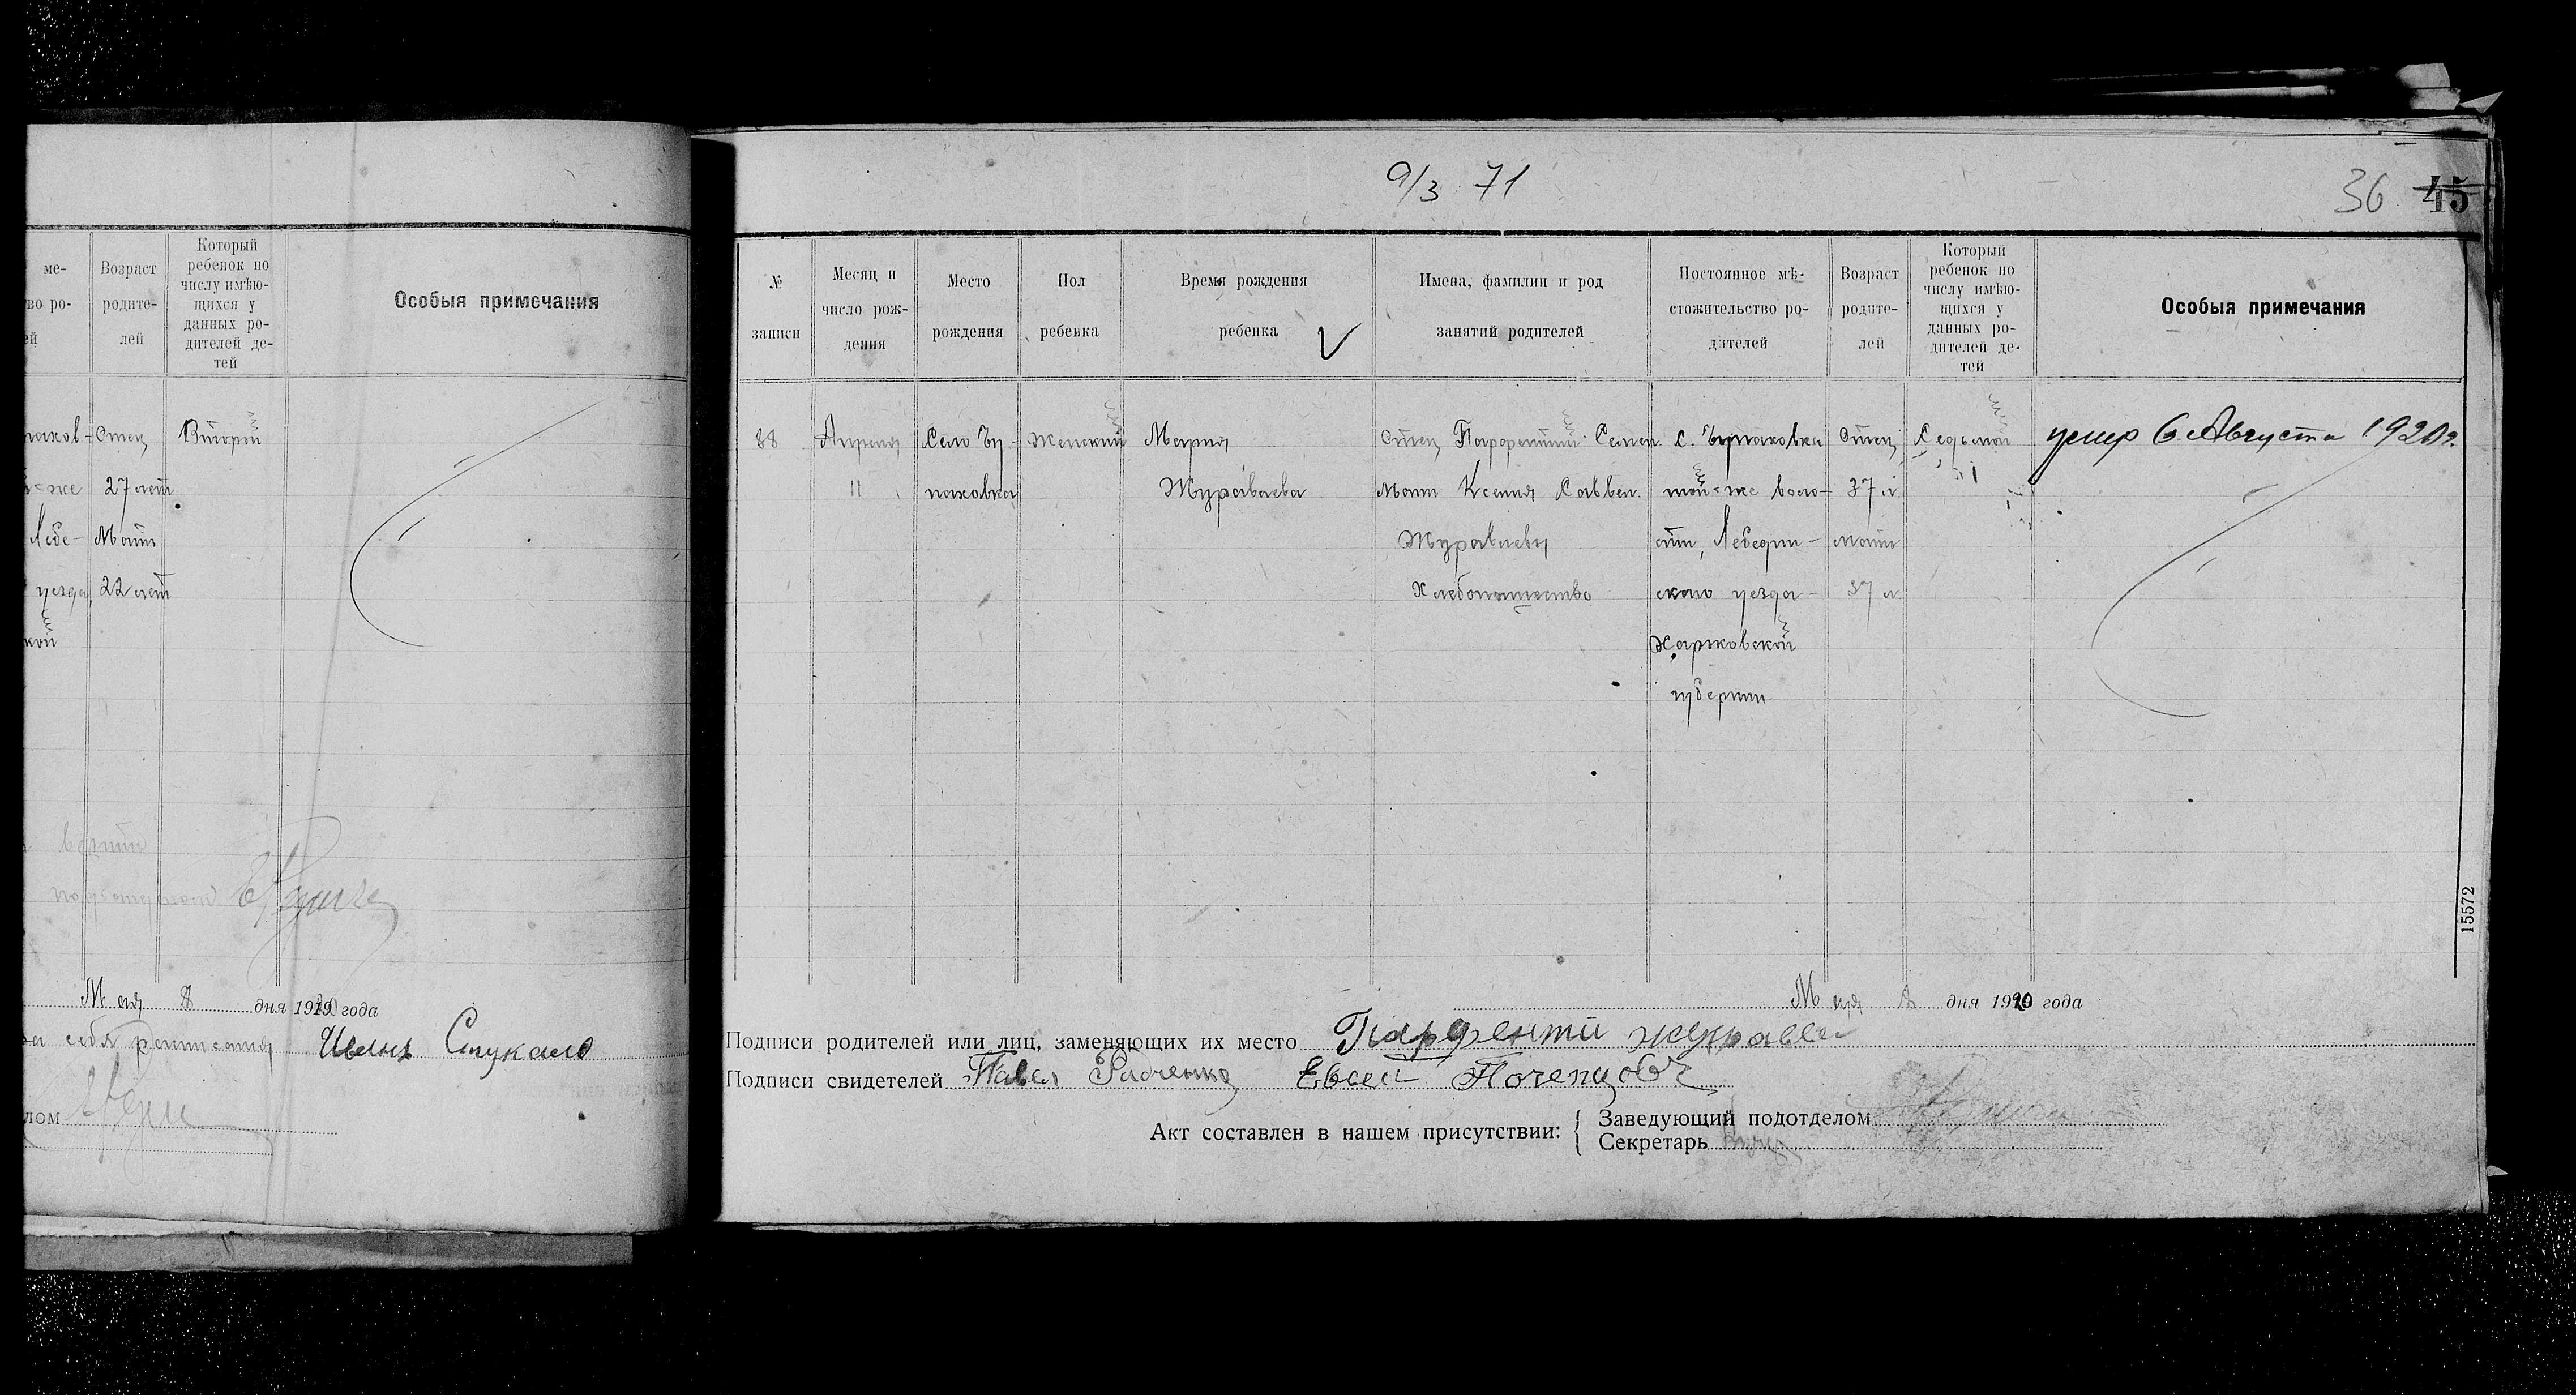 ме-
во ро-
ей
Возраст
родите-
лей
Который
ребенок по
числу имѣю-
щихся у
данных ро-
дителей де-
тей
Особыя примечания
Отец
27 лет
Мать
22 лет
Второй
же
Лебе-
уезда,
кой
Мая 8 дня 1919 года
за себя
Иван Стукало
лом
9/3 71
36 45
№
записи
Месяц и
число рож-
дения
Место
рождения
Пол
ребенка
Время рождения
ребенка
Имена, фамилии и род
занятий родителей
Постоянное мѣ-
стожительство ро-
дителей
Возраст
родите-
лей
Который
ребенок по
числу имѣю-
щихся у
данных ро-
дителей де-
тей
Особыя примечания
88
Апреля
11
Село Бу-
Женский
Мария
Журавлева
Отец Парфентий Семен.
Мать Ксения Саввен.
Журавлевы
Хлебопашество
той-же воло-
сти, Лебедин-
ского уезда
Харьковской
губернии
Отец
37 л.
мать
37 л
Седьмой
умер 6 Августа 1920 г.
15572
Мая 8 дня 1920 года
Подписи родителей или лиц, заменяющих их место Парфентий журавле
Подписи свидетелей Павел Радченко Евсей Почепцовъ
Акт составлен в нашем присутствии:
Заведующий подотделом
Секретарь